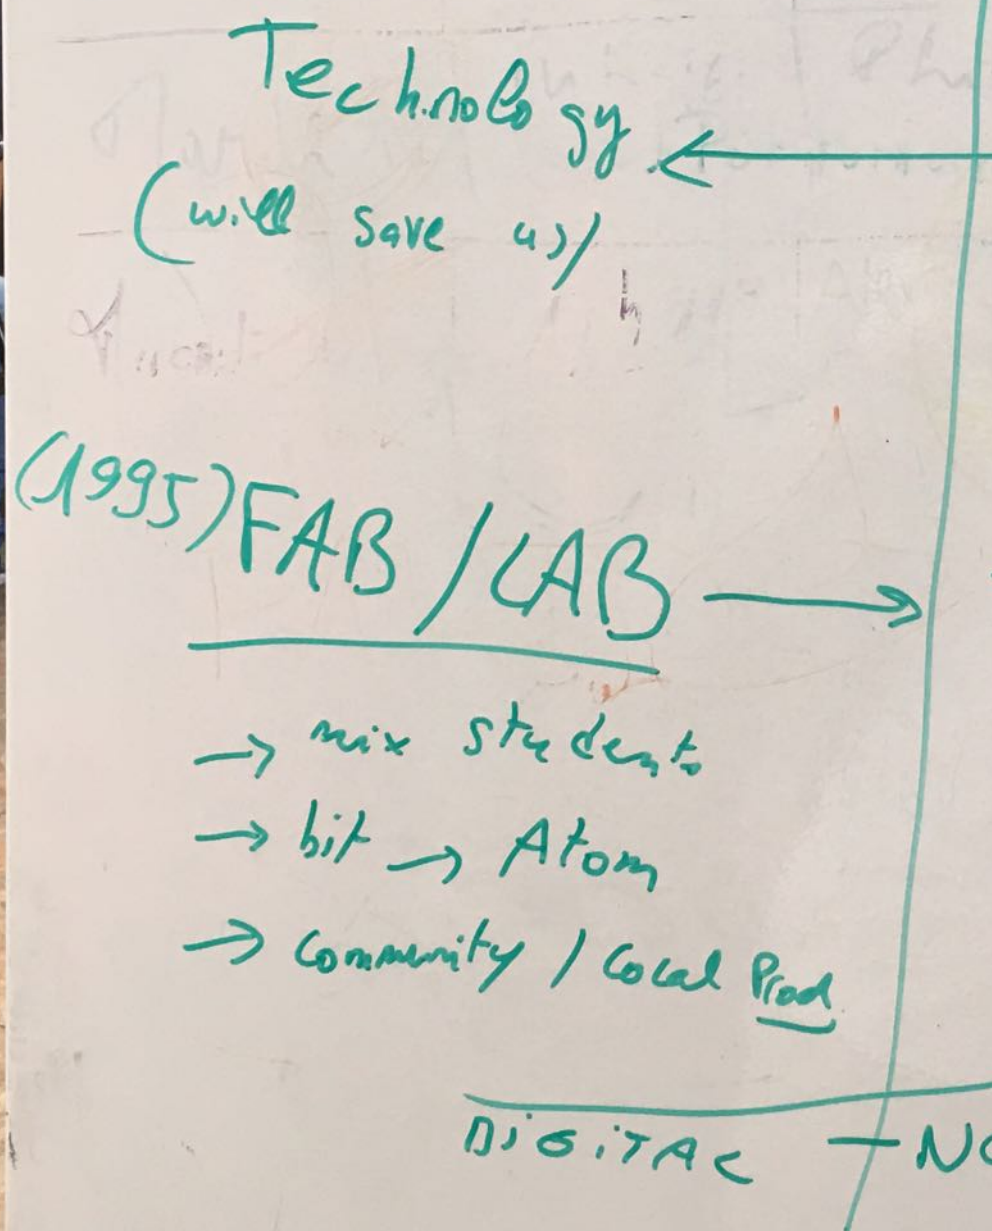 Technology
(will save us)
(1995) FAB / LAB
→ mix students
→ bit → Atom
→ Community / Local Prod
DIGITAL —